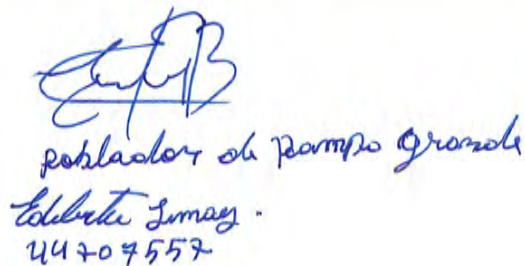 poblador de pampo grande
Edilberto Limay.
44707557